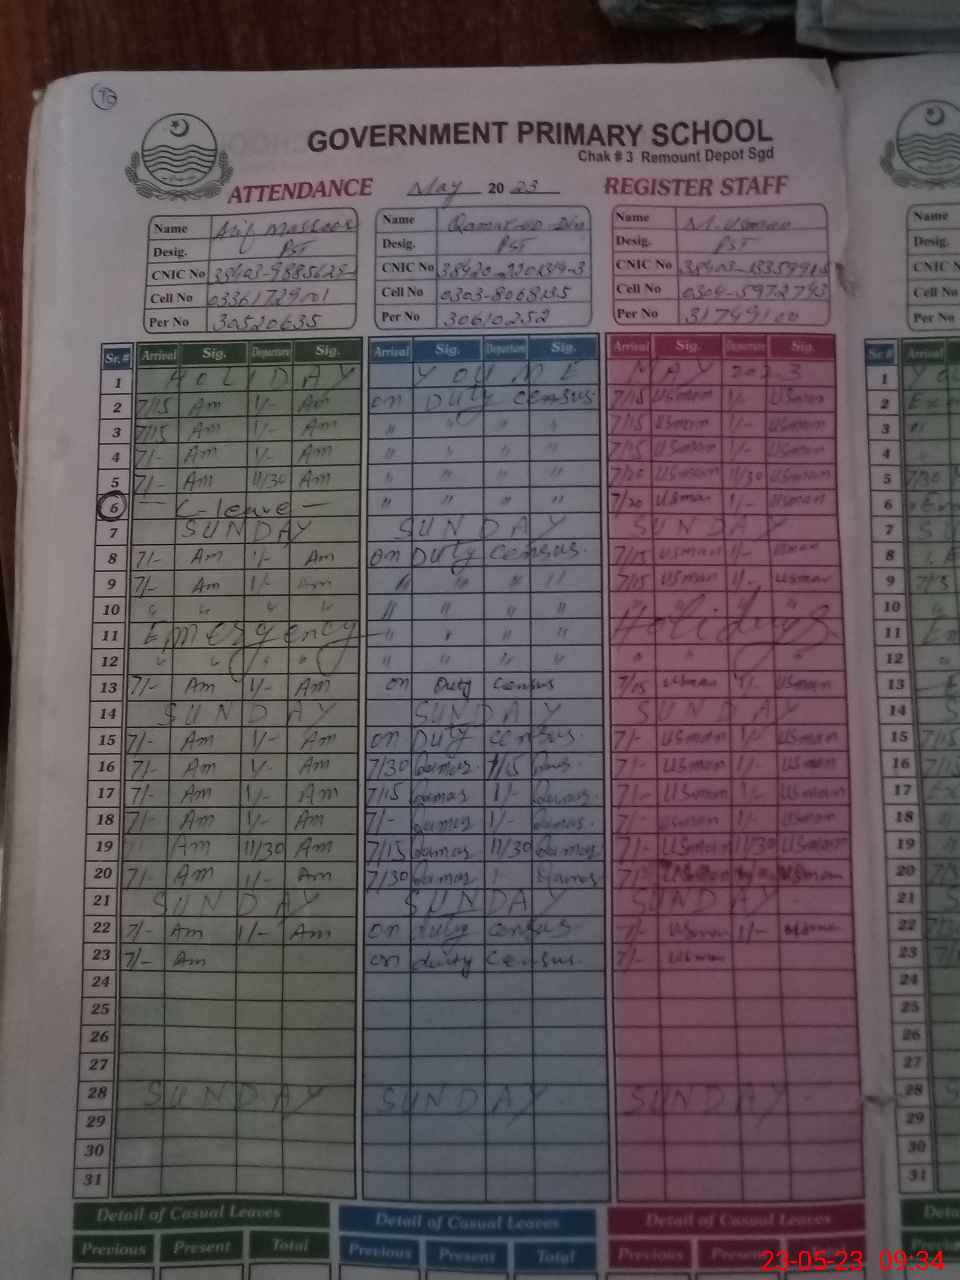 GOVERNMENT PRIMARY SCHOOL
Chak # 3 Remount Depot Sgd
ATTENDANCE May 20 23 REGISTER STAFF
Name Name Qamar-uo-Din Name M. Usman Name
Desig. PST Desig. PST Desig. PST Desig.
CNIC No CNIC No CNIC No CNIC
Cell No 03361729001 Cell No 0303-8068135 Cell No 0304-5972793 Cell No
Per No 30520635 Per No 30610252 Per No 31749100 Per No
Sr. # Arrival Sig. Departure Sig. Arrival Sig. Departure Sig. Arrival Sig. Departure Sig. Sr. # Arrival
1 HOLIDAY MAY 2023 1
2 7/15 Am 1/- Am on Duty census 7/15 Usman 1/- Usman 2
3 7/15 Am 1/- Am " " " " 7/15 Usman 1/- Usman 3
4 7/- Am 1/- Am " " " " 7/15 Usman 1/- Usman 4
5 7/- Am 11/30 Am " " " " 7/20 Usman 11/30 Usman 5 7/30
6 C-leave - " " " " 7/20 Usman 1/- Usman 6
7 SUNDAY SUNDAY SUNDAY 7
8 7/- Am 1/- Am on Duty census. 7/15 Usman 1/- Usman 8
9 7/- Am 1/- Am " " " " 7/15 Usman 1/- Usman 9
10 " " " " " " " " " " 10
11 Emergency " " " " Holidays 11
12 " " " " " " " " " " " 12
13 7/- Am 1/- Am on Duty Census 7/15 Usman 1/- Usman 13
14 SUNDAY SUNDAY SUNDAY 14
15 7/- Am 1/- Am on Duty census. 7/- Usman 1/- Usman 15 7/15
16 7/- Am 1/- Am 7/30 Qamar 1/15 7/- Usman 1/- Usman 16
17 7/- Am 1/- Am 7/15 Qamar 1/- Qamar 7/- Usman 1/- Usman 17
18 7/- Am 1/- Am 7/- Qamar 1/- Qamar 7/- Usman 1/- Usman 18
19 Am 11/30 Am 7/15 Qamar 11/30 Qamar 7/- Usman 11/30 Usman 19
20 7/- Am 1/- Am 7/30 Qamar 1- Qamar 7/- Usman Usman 20
21 SUNDAY SUNDAY SUNDAY 21
22 7/- Am 1/- Am on duty census 7/- Usman 1/- Usman 22
23 7/- Am on duty Census. 7/- Usman 23
24 24
25 25
26 26
27 27
28 SUNDAY SUNDAY SUNDAY 28
29 29
30 30
31 31
Detail of Casual Leaves Detail of Casual Leaves Detail of Casual Leaves
Previous Present Total Previous Present Total Previous Present
23-05-23 09:34